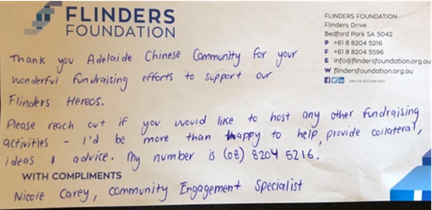 FLINDERS
FOUNDATION
FLINDERS FOUNDATION
Flinders Drive
Bedford Park SA 5042
P +61 8 8204 5216
F +61 8 8204 5596
E info@flindersfoundation.org.au
W flindersfoundation.org.au
Thank you Adelaide Chinese Community for your
wonderful fundraising efforts to support our
Flinders Hereos.
Please reach out if you would like to host any other fundraising
activities - I'd be more than happy to help, provide collateral,
ideas & advice. My number is (08) 8204 5216.
WITH COMPLIMENTS
Nicole Carey, Community Engagement Specialist